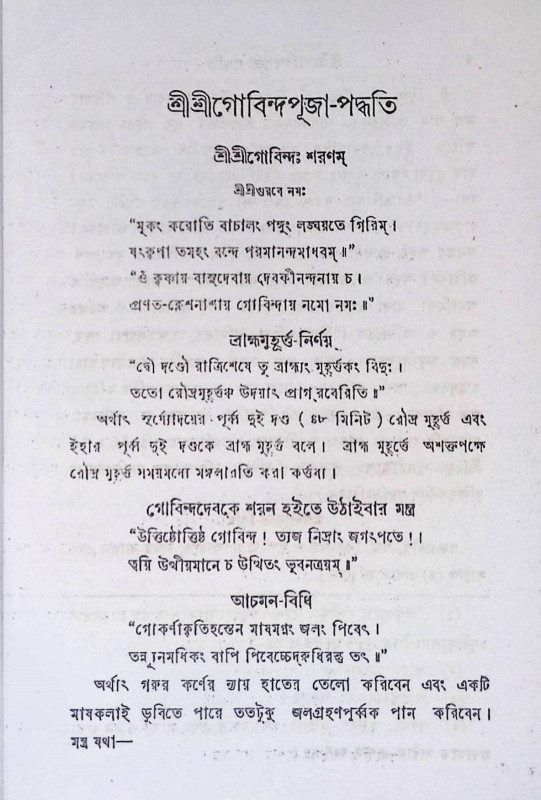 শ্রীশ্রীগোবিন্দপূজা-পদ্ধতি
শ্রীশ্রীগোবিন্দঃ শরণম্
শ্রীশ্রীগুরবে নমঃ
“মূকং করোতি বাচালং পঙ্গুং লঙ্ঘয়তে গিরিম্।
যৎকৃপা তমহং বন্দে পরমানন্দমাধবম্॥”
“ওঁ কৃষ্ণায় বাসুদেবায় দেবকীনন্দনায় চ।
প্রণত-ক্লেশনাশায় গোবিন্দায় নমো নমঃ॥”
ব্রাহ্মমুহূর্ত্ত-নির্ণয়
“দ্বৌ দণ্ডৌ রাত্রিশেষে তু ব্রাহ্ম্যং মুহূর্ত্তকং বিদুঃ।
ততো রৌদ্রমুহূর্ত্তঞ্চ উদয়াৎ প্রাগ্‌রবেরিতি॥”
অর্থাৎ সূর্য্যোদয়ের পূর্ব্ব দুই দণ্ড (৪৮ মিনিট) রৌদ্র মুহূর্ত্ত এবং
ইহার পূর্ব্ব দুই দণ্ডকে ব্রাহ্ম মুহূর্ত্ত বলে। ব্রাহ্ম মুহূর্ত্তে অশক্তপক্ষে
রৌদ্র মুহূর্ত্ত সময়মধ্যে মঙ্গলারতি করা কর্ত্তব্য।
গোবিন্দদেবকে শয়ন হইতে উঠাইবার মন্ত্র
“উত্তিষ্ঠোত্তিষ্ঠ গোবিন্দ! ত্যজ নিদ্রাং জগৎপতে!।
ত্বয়ি উত্থীয়মানে চ উত্থিতং ভুবনত্রয়ম্॥”
আচমন-বিধি
“গোকর্ণাকৃতিহস্তেন মাষমগ্নং জলং পিবেৎ।
তন্ন্যূনমধিকং বাপি পিবেচ্চেদ্‌রুধিরন্তু তৎ॥”
অর্থাৎ গরুর কর্ণের ন্যায় হাতের তেলো করিবেন এবং একটি
মাষকলাই ডুবিতে পারে ততটুকু জলগ্রহণপূর্ব্বক পান করিবেন।
মন্ত্র যথা—